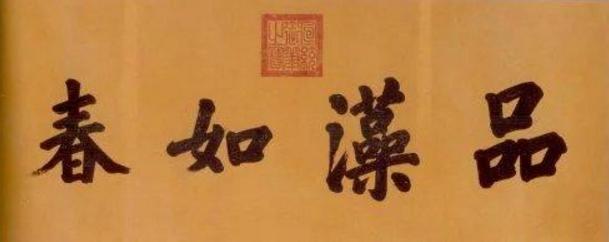 品藻如春